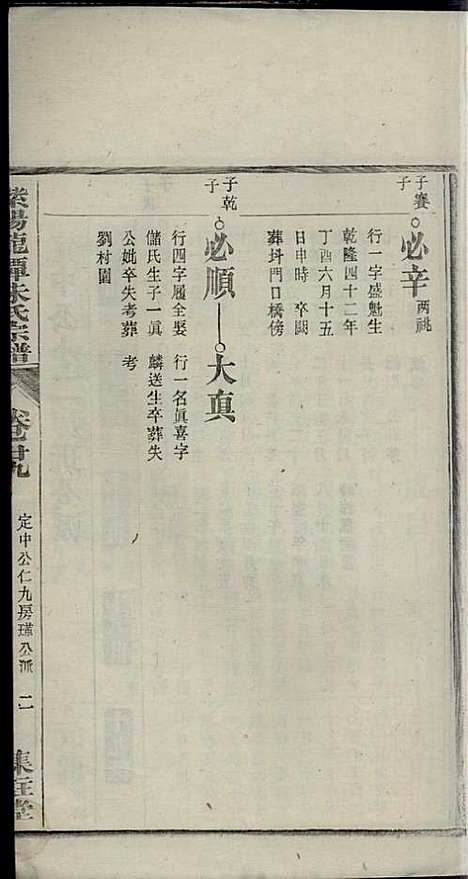 子賽
子
必辛 两祧
行一字盛魁生
乾隆四十二年
丁酉六月十五
日申時 卒闕
葬抖門口橋傍
子乾
子
必順—大真
行四字履全娶
儲氏生子一眞
公妣卒失考葬
劉村園
行一名眞喜字
麟送生卒葬失
考
紫陽龍潭朱氏宗譜
卷廿九
定中公仁九房瑾公派
二
集注堂